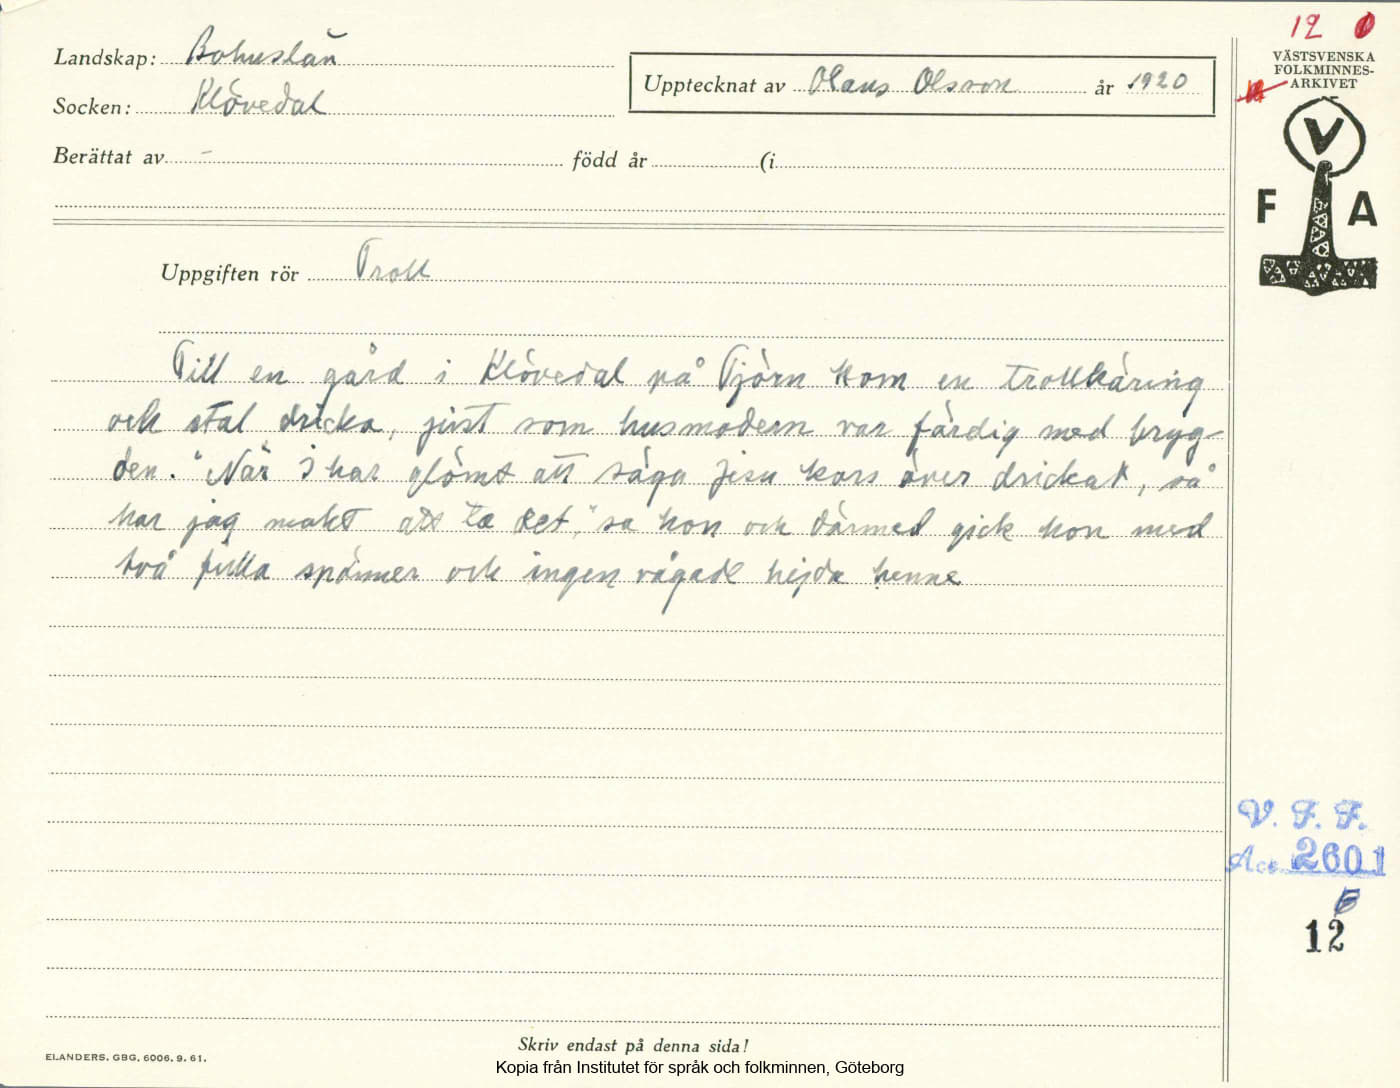 Landskap: Bohuslän
Socken: Klövedal
Upptecknat av Olaus Olsson år 1920
Berättat av - född år (i
Uppgiften rör Troll
Till en gård i Klövedal på Tjörn kom en trollkäring
och stal dricka, just som husmodern var färdig med bryg-
den. "När I har glömt att säga Jisu kors över drickat, så
har jag makt att ta det," sa hon och därmed gick hon med
två fulla spänner och ingen vågade hejda henne
12
VÄSTSVENSKA
FOLKMINNES-
ARKIVET
V
F A
V. F. F.
Acc. 2601
12
ELANDERS. GBG. 6006. 9. 61.
Skriv endast på denna sida!
Kopia från Institutet för språk och folkminnen, Göteborg